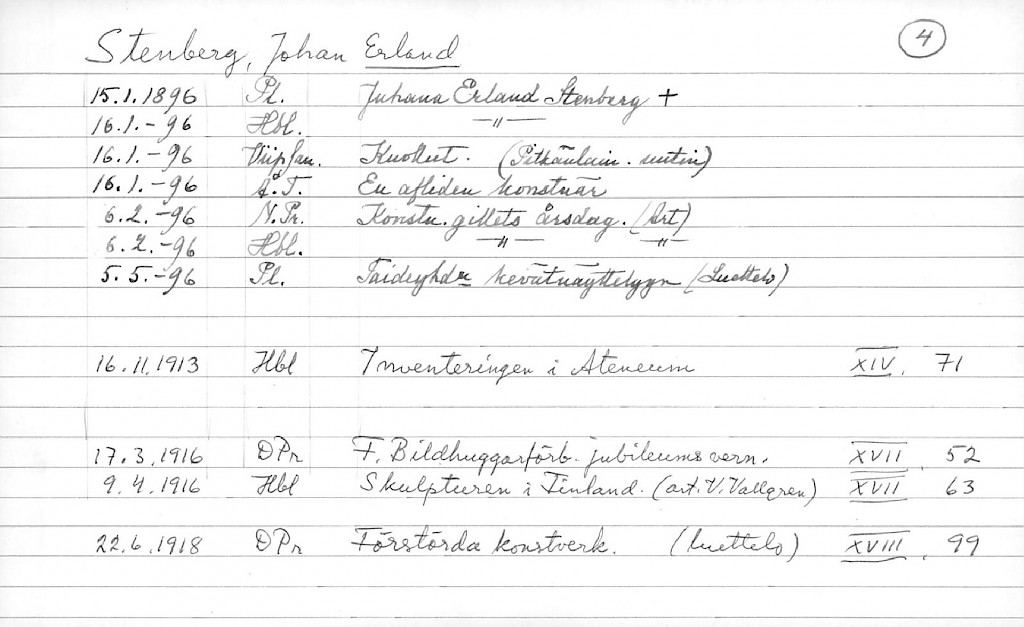 Stenberg, Johan Erland 4
15.1.1896 Pl. Juhana Erland Stenberg +
16.1.-96 Hbl. –"–
16.1.-96 Viip San. Kuollut. (Pitkäulain. uutin)
16.1.-96 Å.T. En afliden konstnär
6.2.-96 N.Pr. Konstn. gillets årsdag. (Art)
6.2.-96 Hbl. –"– –"–
5.5.-96 Pl. Taideyhd:n kevätnäyttelyyn (Luettelo)
16.11.1913 Hbl Inventeringen i Ateneum XIV, 71
17.3.1916 DPr F. Bildhuggarförb. jubileums vern. XVII 52
9.4.1916 Hbl Skulpturen i Finland. (art. V. Vallgren) XVII 63
22.6.1918 DPr Förstörda konstverk. (luettelo) XVIII, 99